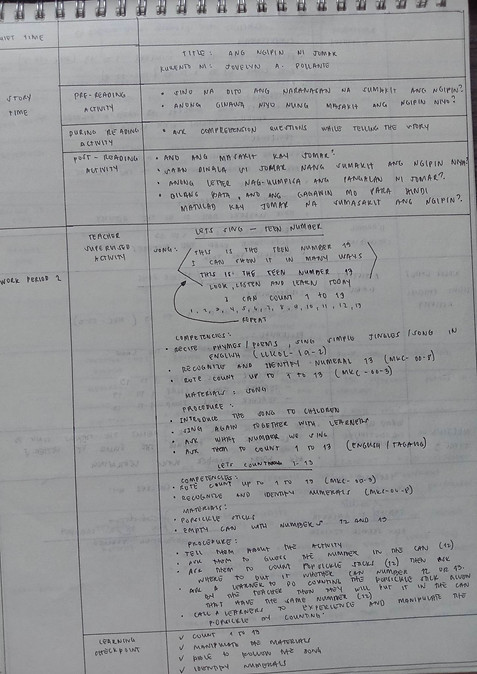 QUIET TIME
TITLE: ANG NGIPIN NI JOMAR
KUWENTO NI: JOVELYN A. POLLANTE
STORY TIME
PRE-READING ACTIVITY
• SINO NA DITO ANG NARANASAN NA SUMAKIT ANG NGIPIN?
• ANONG GINAWA NIYO NUNG MASAKIT ANG NGIPIN NIYO?
DURING READING ACTIVITY
• ASK COMPREHENSION QUESTIONS WHILE TELLING THE STORY
POST-READING ACTIVITY
• ANO ANG MASAKIT KAY JOMAR?
• SAAN DINALA SI JOMAR NANG SUMAKIT ANG NGIPIN NIYA?
• ANONG LETTER NAG-UMPISA ANG PANGALAN NI JOMAR?
• BILANG BATA, ANO ANG GAGAWIN MO PARA HINDI
MATULAD KAY JOMAR NA SUMASAKIT ANG NGIPIN?
WORK PERIOD 2
TEACHER SUPERVISED ACTIVITY
LETS SING - TEEN NUMBER
SONG:
THIS IS THE TEEN NUMBER 13
I CAN SHOW IT IN MANY WAYS
THIS IS THE TEEN NUMBER 13
LOOK, LISTEN AND LEARN TODAY
I CAN COUNT 1 TO 13
1, 2, 3, 4, 5, 6, 7, 8, 9, 10, 11, 12, 13
REPEAT
COMPETENCIES:
• RECITE RHYMES / POEMS, SING SIMPLE JINGLES / SONG IN
ENGLISH
• RECOGNIZE AND IDENTIFY NUMERAL 13 (MKC-00-8)
• ROTE COUNT UP TO 1 TO 13 (MKC-00-3)
MATERIALS: SONG
PROCEDURE:
• INTRODUCE THE SONG TO CHILDREN
• SING AGAIN TOGETHER WITH LEARNERS
• ASK WHAT NUMBER WE SING
• ASK THEM TO COUNT 1 TO 13 (ENGLISH /
LETS COUNT 1-13
COMPETENCIES:
• ROTE COUNT UP TO 1 TO 13 (MKC-00-3)
• RECOGNIZE AND IDENTIFY NUMERALS (MKC-00-8)
MATERIALS:
• POPSICLE STICKS
• EMPTY CAN WITH NUMBERS 12 AND 13
PROCEDURE:
• TELL THEM ABOUT THE ACTIVITY
• ASK THEM TO GUESS THE NUMBER IN THE CAN (12)
• ASK THEM TO COUNT POPSICLE STICKS (12) THEN ASK
WHERE TO PUT IT WHETHER CAN NUMBER 12 OR 13.
• ASK A LEARNER TO DO COUNTING THE POPSICLE STICK
BY THE TEACHER THEN THEY WILL PUT IT IN THE CAN
THAT HAVE THE SAME NUMBER
• CALL A LEARNERS TO EXPERIENCE AND MANIPULATE THE
POPSICLE BY COUNTING.
LEARNING CHECKPOINT
✓ COUNT 1 TO 13
✓ MANIPULATE THE MATERIALS
✓ ABLE TO FOLLOW THE SONG
✓ IDENTIFY NUMERALS